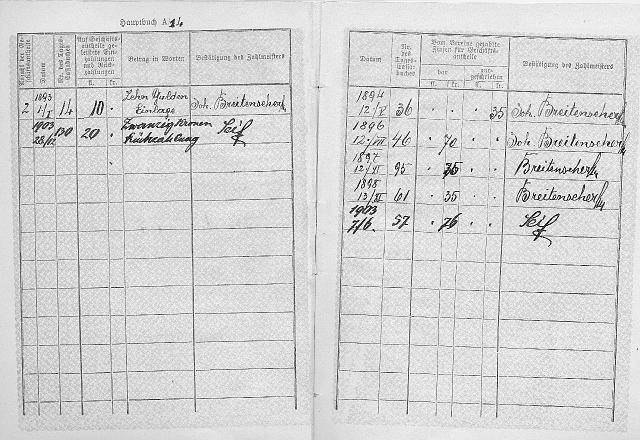 Hauptbuch A 14
Anzahl der Ge-
schäftsanteile
Datum
No. des Tages-
Cassabuches
Auf Geschäfts-
anteile ge-
leistete Ein-
zahlungen
und Rück-
zahlungen
fl. kr.
Betrag in Worten
Bestätigung des Zahlmeisters
2 1893 1/V 14 10 · Zehn Gulden
Einlage Joh. Breitenscher
1903 28/12 130 20 · Zwanzig Kronen
Rückzahlung Seif
Datum
No. des Tages-Cassa-buches
Vom Vereine gezahlte
Zinsen für Geschäfts-
antheile
bar
zugeschrieben
fl. kr. fl. kr.
Bestätigung des Zahlmeisters
1894
12/V 36 · · · 35 Joh. Breitenscher
1896
12/VII 46 · 70 · · Joh. Breitenscher
1897
12/VI 95 · 35 · · Breitenscher
1898
13/XI 61 · 35 · · Breitenscher
1903
7/6. 57 · 76 · · Seif